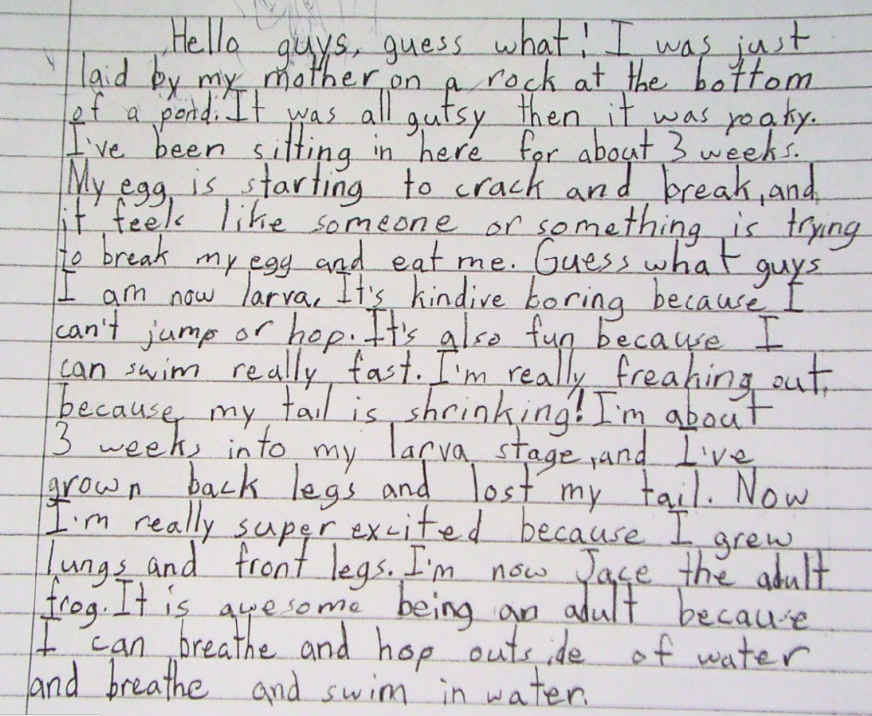 Hello guys, guess what! I was just
laid by my mother on a rock at the bottom
of a pond. It was all gutsy then it was yoaky.
I've been sitting in here for about 3 weeks.
My egg is starting to crack and break, and
it feels like someone or something is trying
to break my egg and eat me. Guess what guys
I am now larva. It's kindive boring because I
can't jump or hop. It's also fun because I
can swim really fast. I'm really freaking out,
because my tail is shrinking! I'm about
3 weeks into my larva stage, and I've
grown back legs and lost my tail. Now
I'm really super excited because I grew
lungs and front legs. I'm now Jace the adult
frog. It is awesome being an adult because
I can breathe and hop outside of water
and breathe and swim in water.